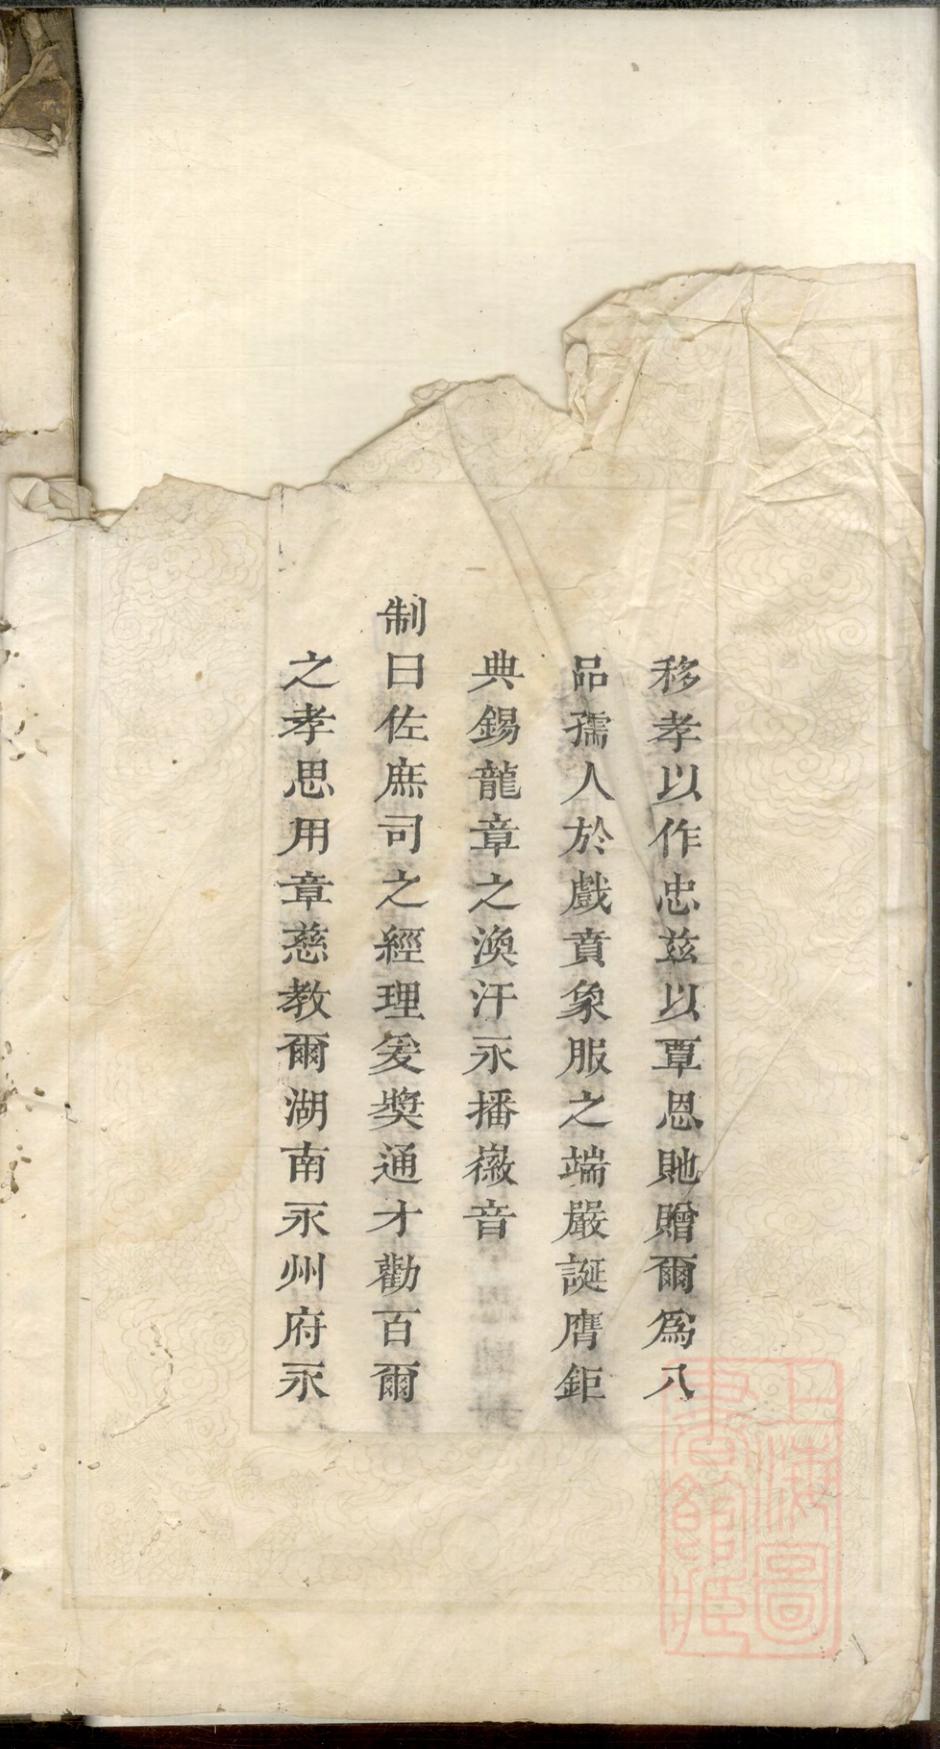 移孝以作忠兹以覃恩貤贈爾爲八
品孺人於戲賁象服之端嚴誕膺鉅
典錫龍章之渙汗永播徽音
制曰佐庶司之經理爰奬通才勸百爾
之孝思用章慈教爾湖南永州府永
上海圖
書館藏